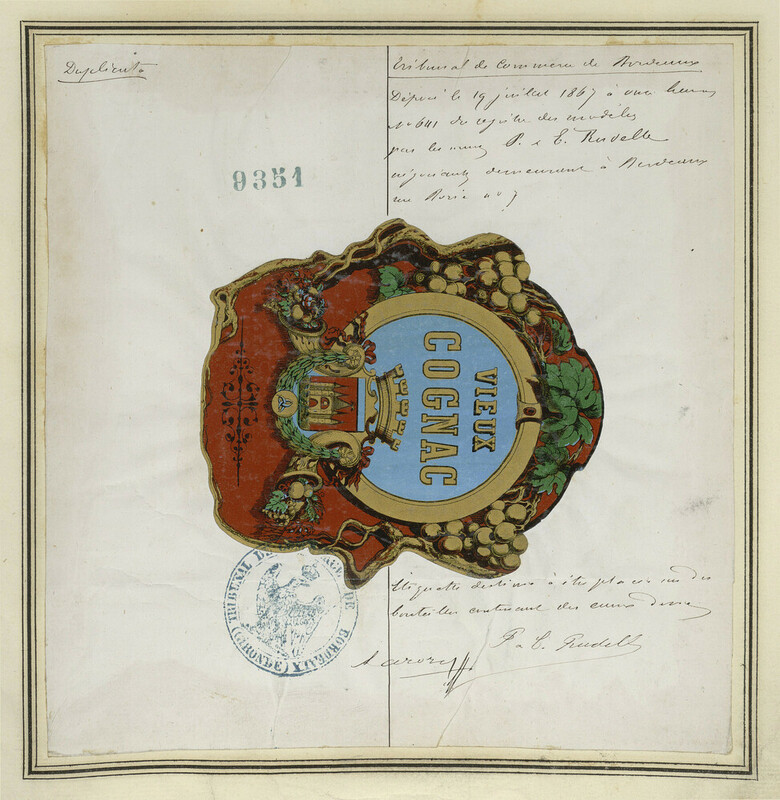 Duplicata
9351
Tribunal de Commerce de Bordeaux
Déposé le 19 juillet 1867 à onze heures
No 641 du registre des modèles
par les P. & E. Rudelle
négociants demeurant à Bordeaux
rue Borie no 7
VIEUX
COGNAC
Etiquette destinée à être placée sur des
bouteilles contenant des eaux de vie
P & E. Rudelle
TRIBUNAL DE DE BORDEAUX
(GIRONDE)